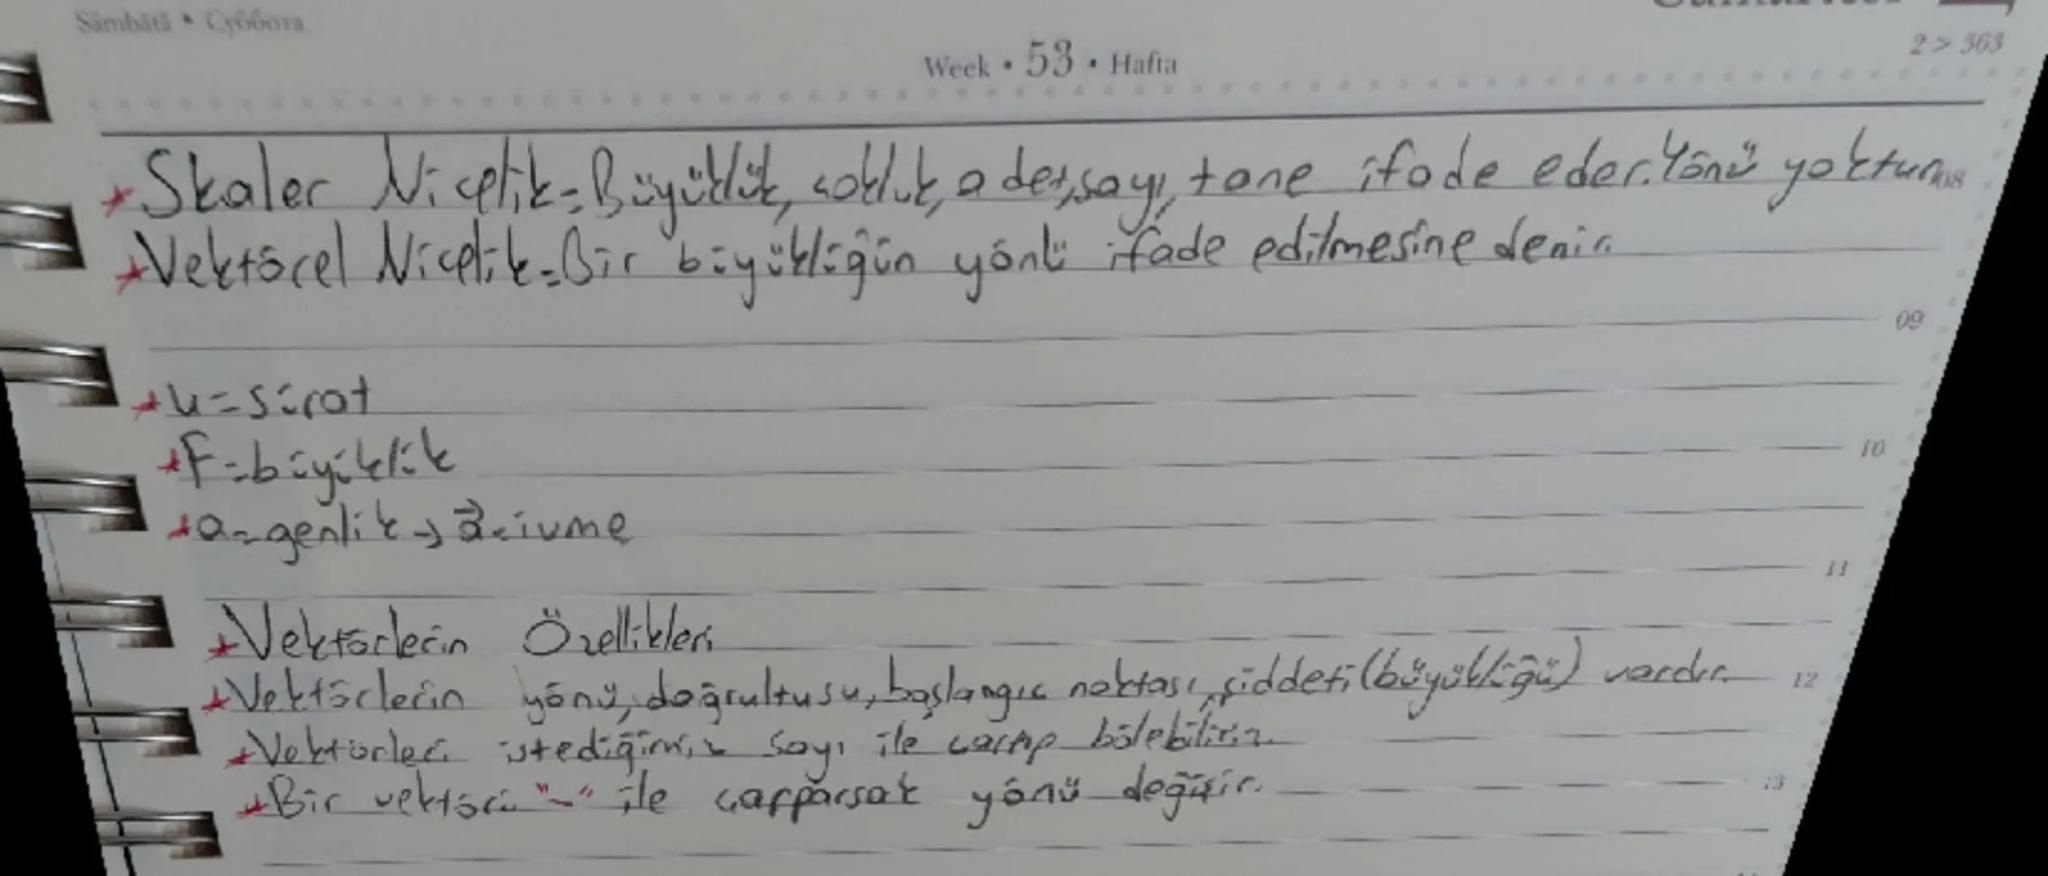 Sâmbătă • Суббота
Week • 53 • Hafta
2 > 363
* Skaler Nicelik = Büyüklük, çokluk, adet, sayı, tane ifade eder. Yönü yoktur. 08
* Vektörel Nicelik = Bir büyüklüğün yönlü ifade edilmesine denir.
09
* u = sürat
* F = büyüklük 10
* a = genlik → a⃗ = ivme
11
* Vektörlerin Özellikleri
* Vektörlerin yönü, doğrultusu, başlangıç noktası, şiddeti (büyüklüğü) vardır. 12
* Vektörleri istediğimiz sayı ile çarpıp bölebiliriz.
* Bir vektörü "-" ile çarparsak yönü değişir. 13